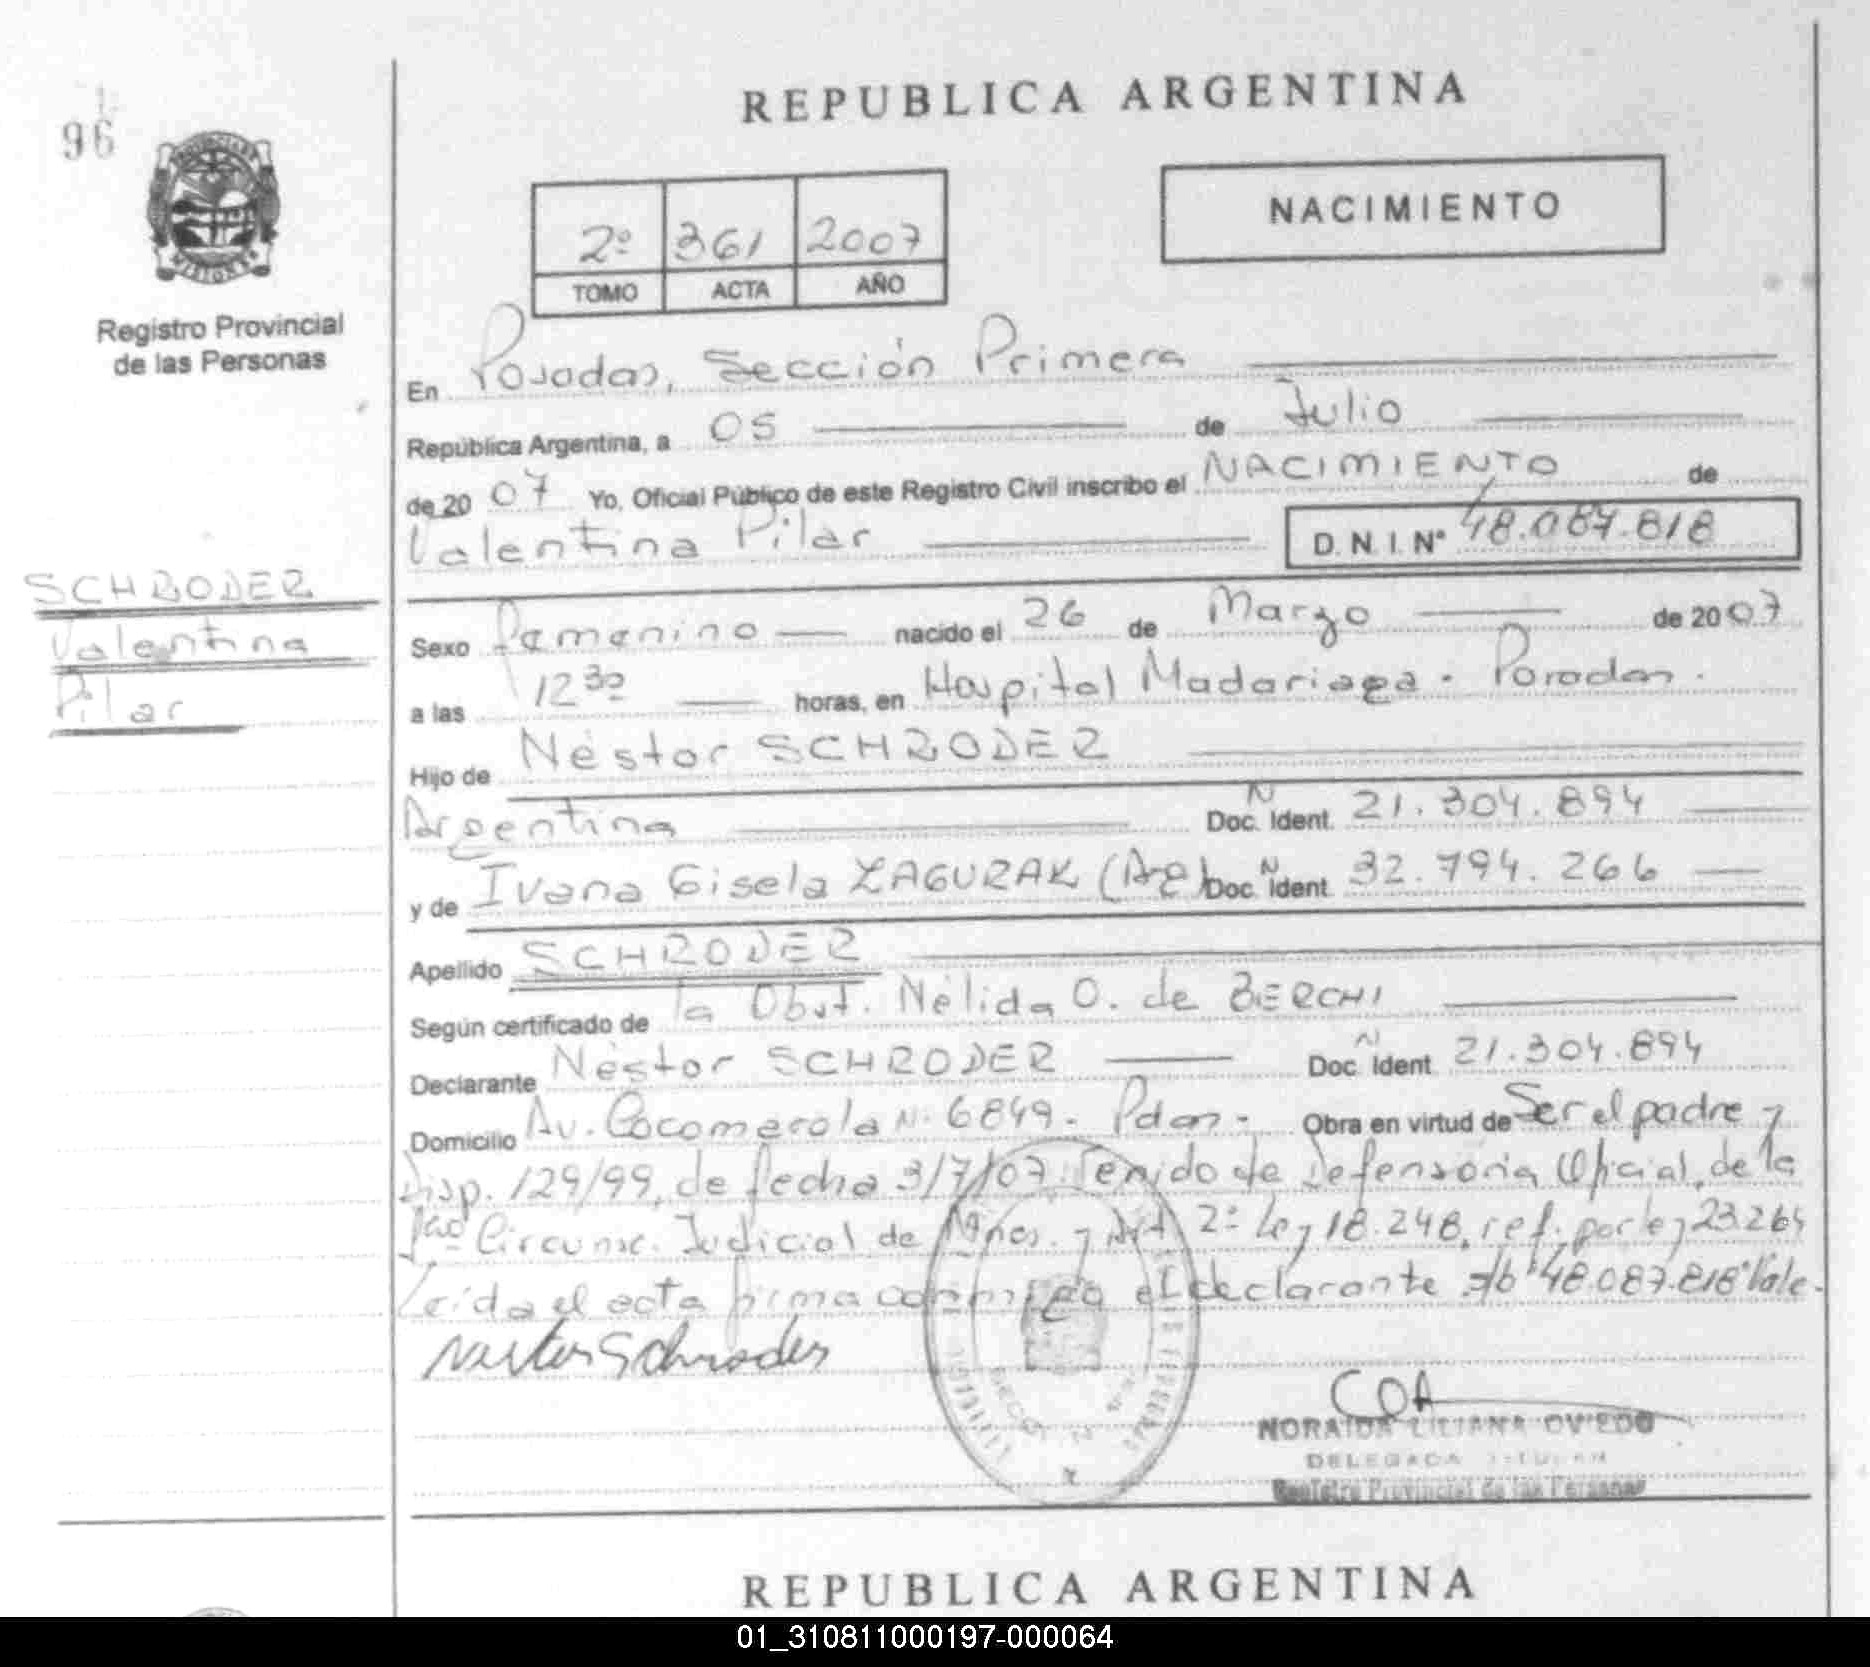 96
REPUBLICA ARGENTINA
NACIMIENTO
2º 361 2007
TOMO ACTA AÑO
MISIONES
Registro Provincial
de las Personas
En Posadas, Sección Primera
República Argentina, a 05 de Julio
de 2007 Yo, Oficial Público de este Registro Civil inscribo el NACIMIENTO de
Valentina Pilar D. N. I. Nº 48.087.818
SCHRODER
Valentina
Pilar
Sexo Femenino nacido el 26 de Marzo de 2007
a las 12 30 horas, en Hospital Madariaga - Posadas.
Hijo de Néstor SCHRODER
Argentina Doc. Ident. N 21.304.894
y de Ivana Gisela ZAGURAK (Arg) Doc. Ident. N 32.794.266
Apellido SCHRODER
Según certificado de la Obst. Nélida O. de BERCHI
Declarante Néstor SCHRODER Doc. Ident. N 21.304.894
Domicilio Av. Cocomarola N. 6849 - Pdas - Obra en virtud de Ser el padre y
Disp. 129/99, de fecha 3/7/07 de Defensoria Oficial, de la
1ra Circunsc. Judicial de Mnes. y Art 2º Ley 18.248, ref. por ley 23.264
Leída el acta firma conmigo el declarante s/b "48.087.818" Vale.
Nestor Schroder
NORAIDA LILIANA OVIEDO
DELEGADA TITULAR
Registro Provincial de las Personas
REPUBLICA ARGENTINA
01_310811000197-000064